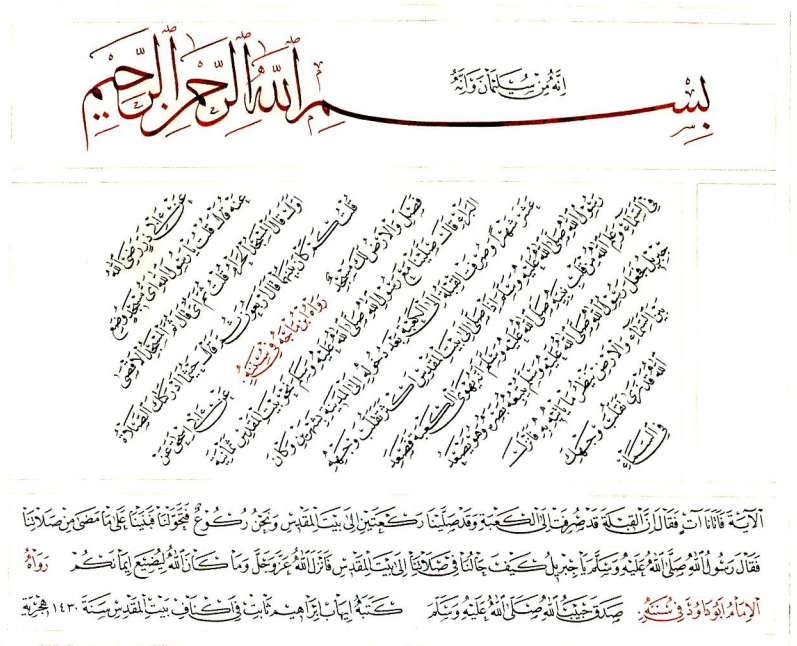 إنه من سليمان وإنه
بسم الله الرحمن الرحيم
عن أبي ذر رضي الله
عنه قال قلت يا رسول الله أي مسجد وضع
أول قال المسجد الحرام قلت ثم أي قال ثم المسجد الأقصى
قلت كم كان بينهما قال أربعون ثم قال حيثما أدركتك الصلاة
فصل والأرض لك مسجد رواه ابن ماجه في سننه عن أبي إسحق عن
البراء قال صلينا مع رسول الله صلى الله عليه وسلم نحو بيت المقدس ثمانية
عشر شهرا وصرفت القبلة إلى الكعبة بعد دخوله إلى المدينة بشهرين وكان
رسول الله صلى الله عليه وسلم إذا صلى إلى بيت المقدس أكثر تقلب وجهه
في السماء وعلم الله من قلب نبيه صلى الله عليه وسلم أنه يهوى الكعبة فصعد
جبريل فجعل رسول الله صلى الله عليه وسلم يتبعه بصره وهو يصعد
بين السماء والأرض ينظر ما يأتيه به فأنزل
الله قد نرى تقلب وجهك
في السماء
الآية فأتانا آت فقال إن القبلة قد صرفت إلى الكعبة وقد صلينا ركعتين إلى بيت المقدس ونحن ركوع فتحولنا فبنينا على ما مضى من صلاتنا
فقال رسول الله صلى الله عليه وسلم يا جبريل كيف حالنا في صلاتنا إلى بيت المقدس فأنزل الله عز وجل وما كان الله ليضيع إيمانكم رواه
الإمام أبو داوود في سننه صدق حبيب الله صلى الله عليه وسلم كتبه إيهاب إبراهيم ثابت في أكناف بيت المقدس سنة ١٤٣٠ هجرية